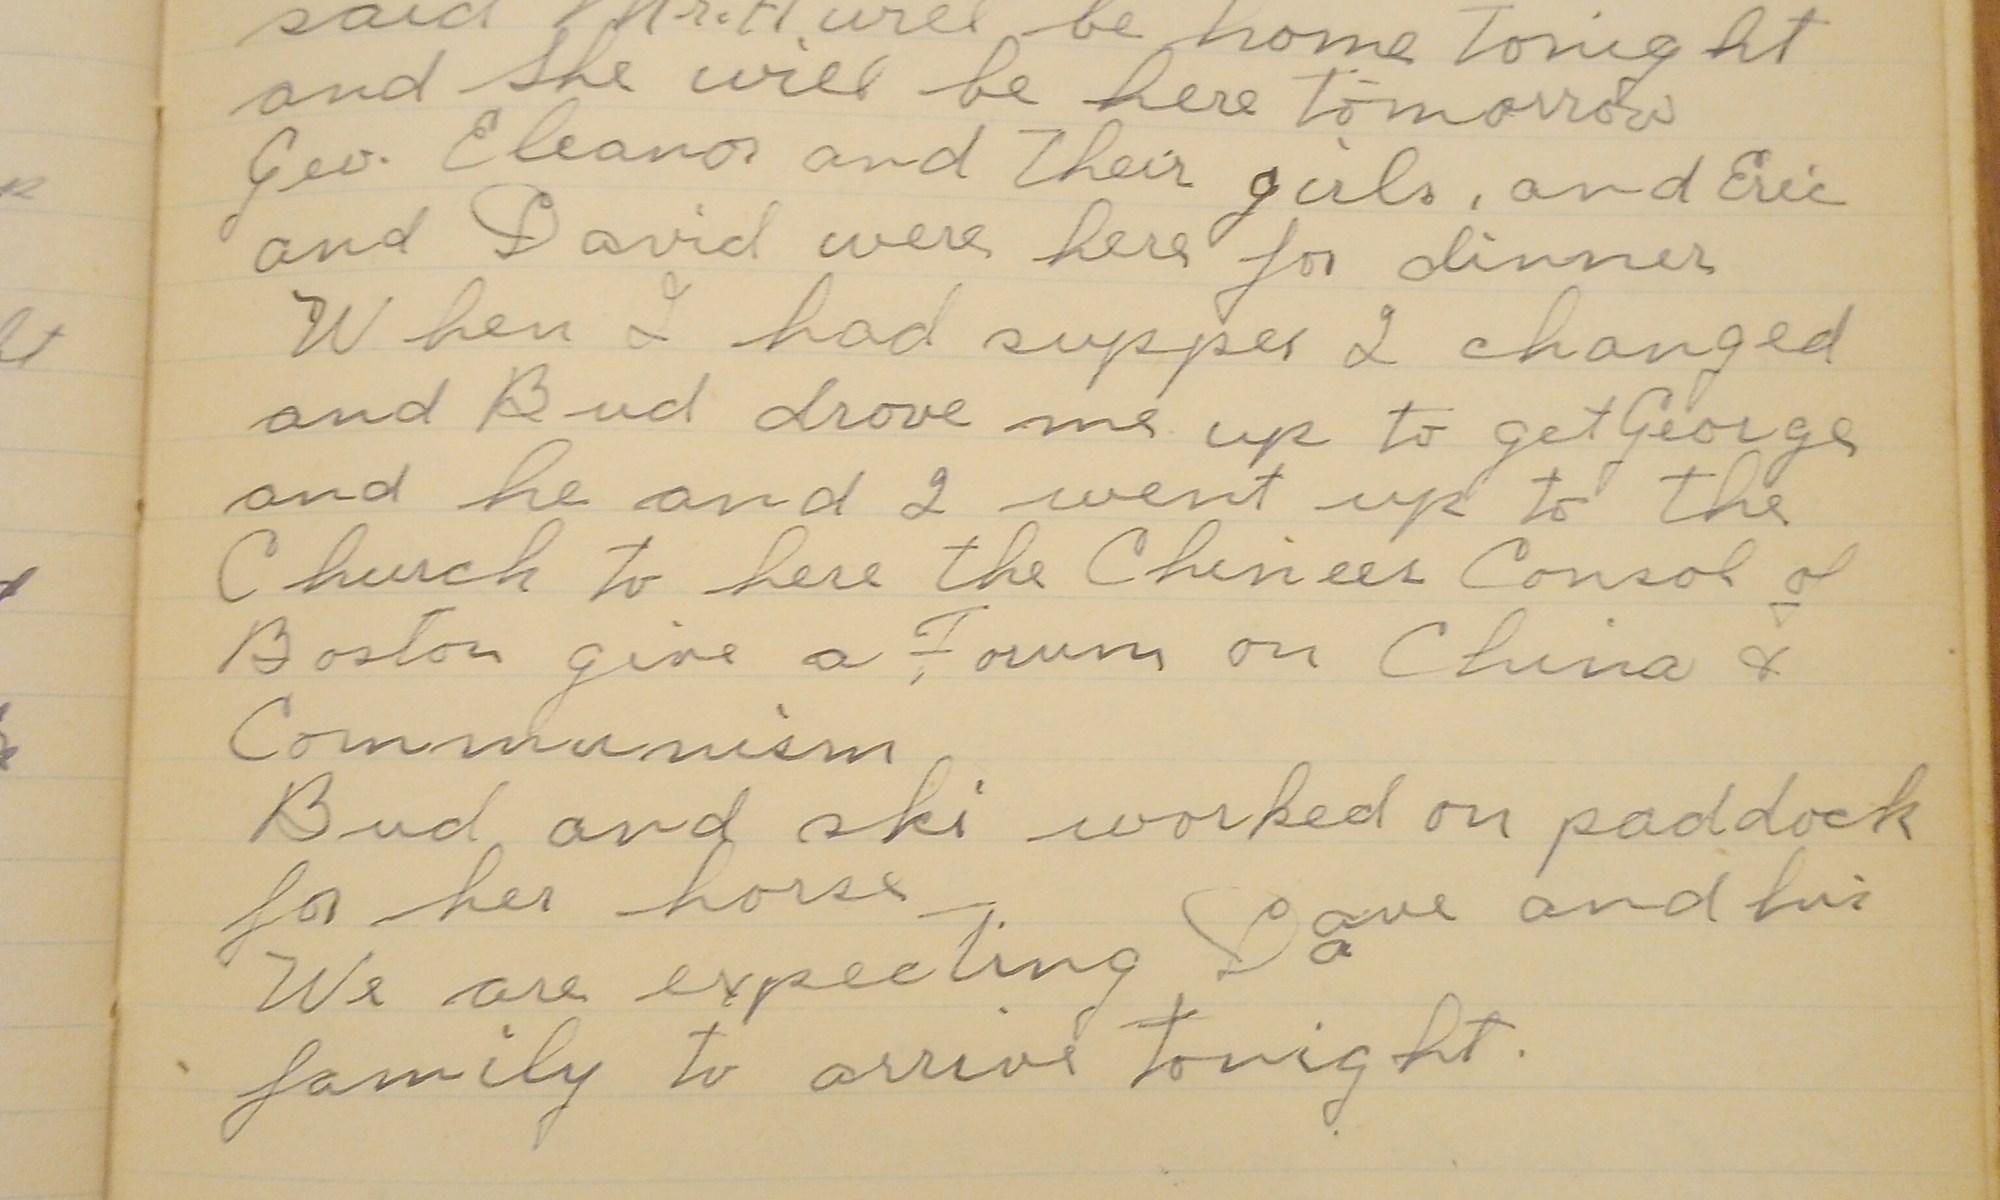 said Mr. H. will be home tonight
and she will be here tomorrow
Geo. Eleanor and their girls, and Eric
and David were here for dinner
When I had supper I changed
and Bud drove me up to get George
and he and I went up to the
Church to here the Chineer Consol of
Boston give a Forum on China &
Communism
Bud and ski worked on paddock
for her horse
We are expecting Dave and his
family to arrive tonight.